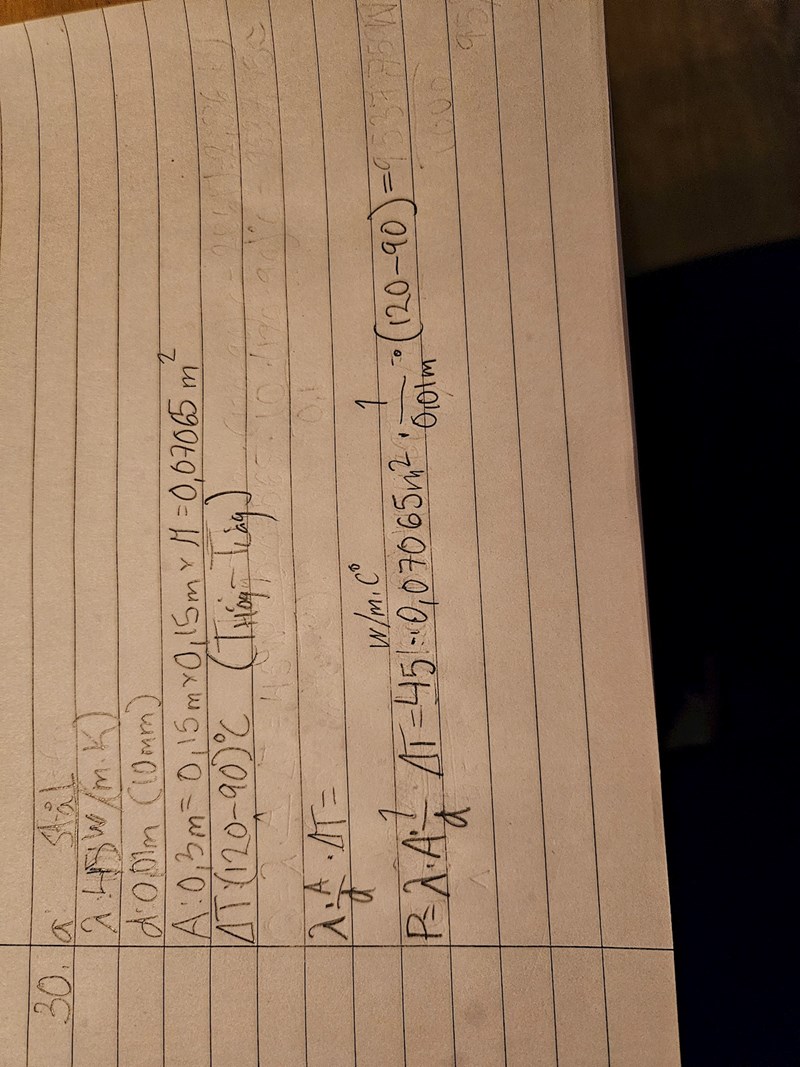 30. a. Stål
λ: 45W/(m.K)
d: 0,01m (10mm)
A: 0,3m = 0,15m × 0,15m × π = 0,07065m²
ΔT: (120-90)°C (THög - TLåg)
λ · A/d · ΔT =
W/m.C°
P = λ · A · 1/d ΔT = 45 · 0,07065m² · 1/0,01m · (120-90) = 9537,75W
1000